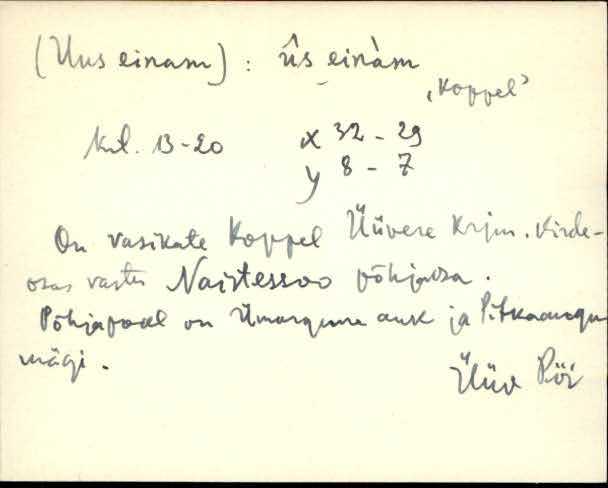 (Uus einam) : ûs einàm
‚Koppel’
kül. 13-20 x 32 - 29
y 8 - 7
On vasikate koppel Üüvere krjm. kirde-
osas vastu Naistessoo põhjaosa.
Põhjapool on Ümargune auk ja Pitkaaugu
mägi.
Üüv Pöi